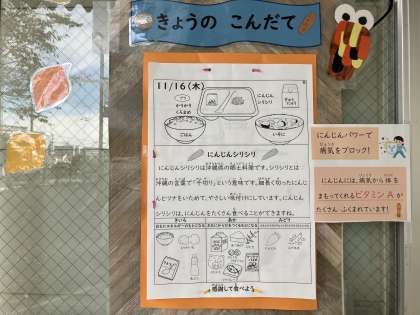 きょうの こんだて
11/16(木)
にんじん
シリシリ
ごはん
にんじんシリシリ
にんじんシリシリは沖縄県の郷土料理です。シリシリとは
沖縄の言葉で「千切り」という意味です。細長く切ったにんじ
んとツナをいためて、やさしい味付けにしています。にんじん
シリシリは、にんじんをたくさん食べることができますね。
きいろ
あか
みどり
感謝して食べよう
にんじんパワーで
びょうき
病気をブロック!
にんじんには、病気から体を
まもってくれるビタミンAが
たくさん ふくまれています!